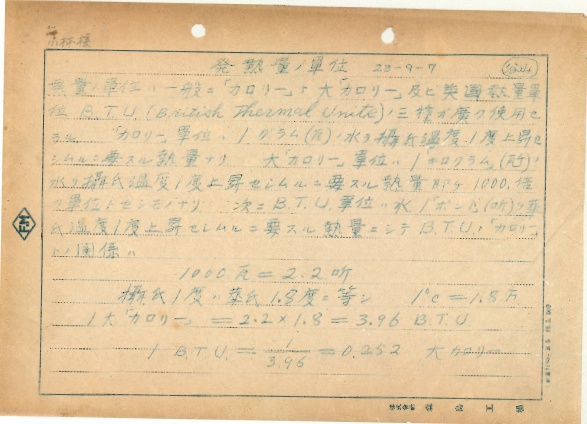 発熱量ノ単位 23-9-7
熱量ノ単位ハ一般ニ「カロリー」ト大「カロリー」及ビ英国熱量単
位 B.T.U. (British Thermal Unite)ノ三種ガ廣ク使用セ
ラル 「カロリー」単位ハ1グラム(瓦)ノ水ヲ攝氏温度1度上昇セ
シムルニ要スル熱量ナリ 大「カロリー」単位ハ1キログラム
水ヲ攝氏温度1度上昇セシムルニ要スル熱量即チ1000倍
ヲ単位トセシモノナリ 次ニB.T.U.単位ハ水1ポンド(听)ヲ華
氏温度1度上昇セシムルニ要スル熱量ニシテB.T.U.ト「カロリー」
トノ関係ハ
1000瓦=2.2听
攝氏1度ハ華氏1.8度ニ等シ 1°C=1.8F
1大「カロリー」=2.2×1.8=3.96 B.T.U.
1 B.T.U.=1/3.96=0.252 大カロリー
FM
株式会社